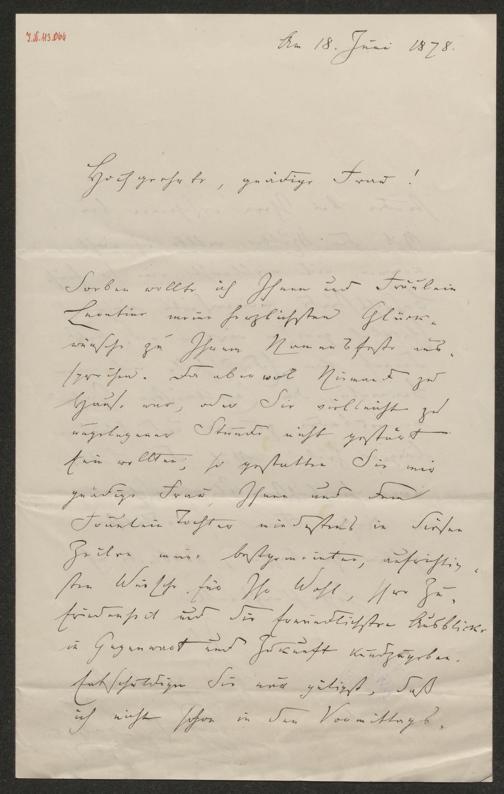 I.N. 113.066
Am 18. Juni 1878.
Hochgeehrte, gnädige Frau!
Soeben wollte ich Ihnen und Fräulein
Leontine meine herzlichsten Glück-
wünsche zu Ihrem Namensfeste aus-
sprechen. Da aber wol Niemand zu
Hause war, oder Sie vielleicht zu
ungelegener Stunde nicht gestört
sein wollten, so gestatten Sie mir
gnädige Frau, Ihnen und dem
Fräulein Tochter mindestens in diesen
Zeilen meine bestgemeinten, aufrichtig-
sten Wünsche für Ihr Wohl, Ihre Zu-
friedenheit und die freundlichsten Ausblicke
in Gegenwart und Zukunft kundzugeben.
Entschuldigen Sie nur gütigst, daß
ich nicht schon in den Vormittags-